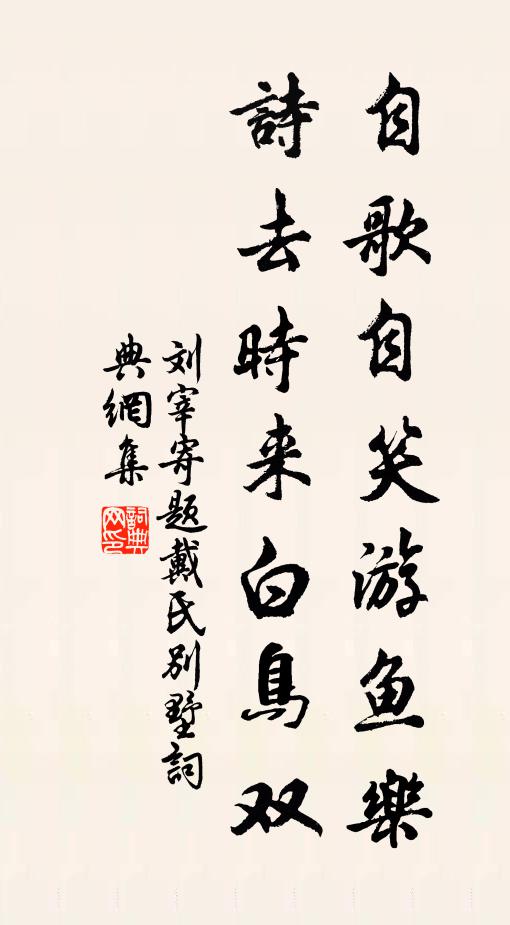 自歌自笑游鱼樂
詩去時来白鳥双
刘宰寄题戴氏别墅詞
典網集
詞典网印